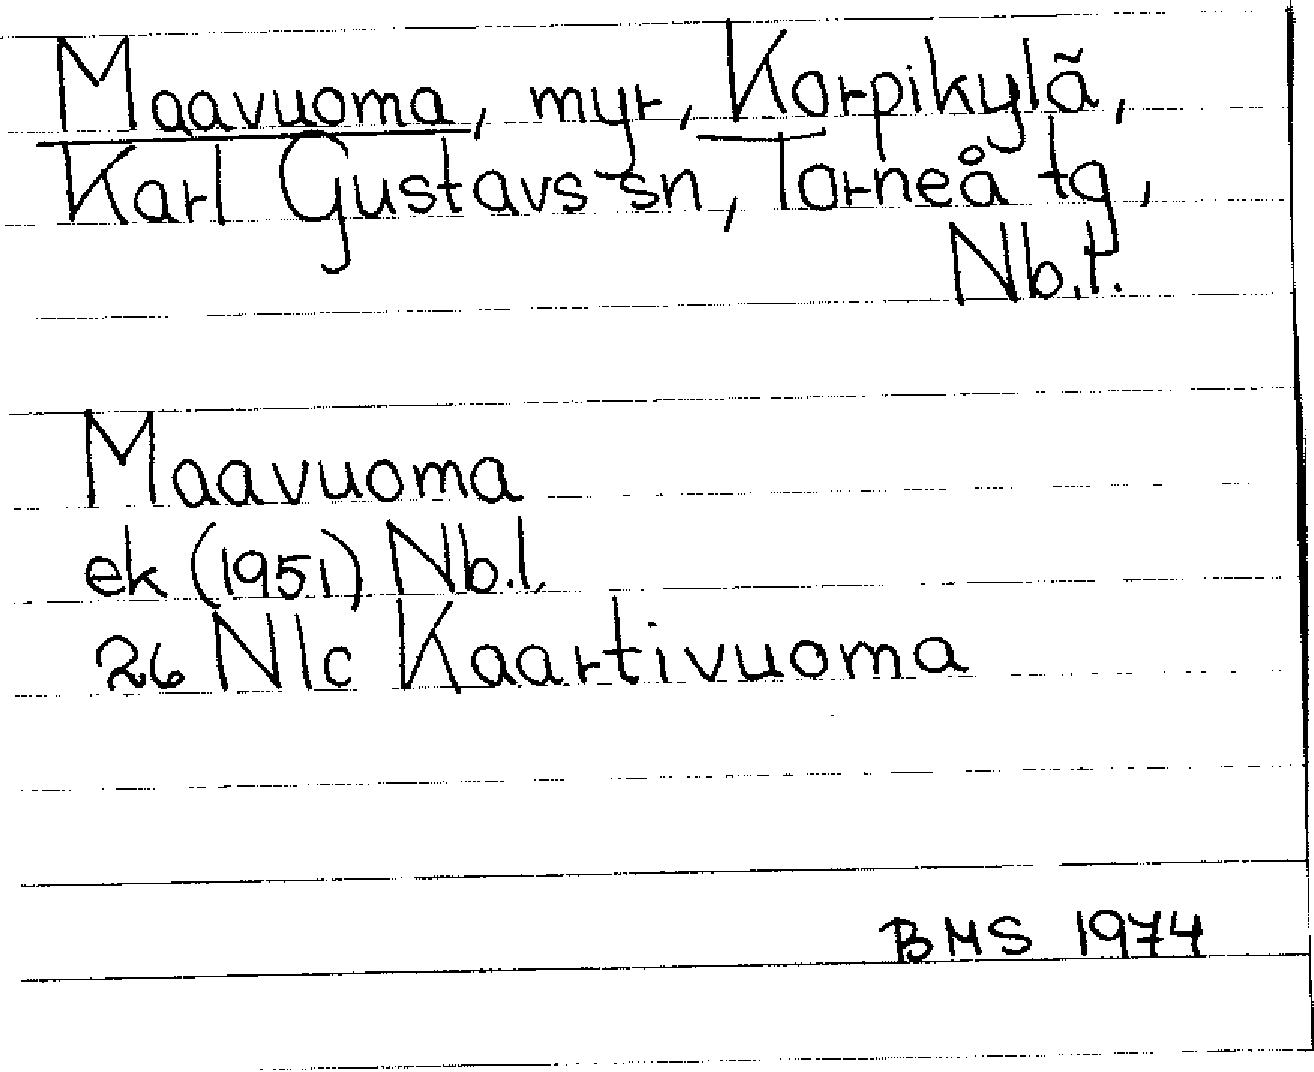 Maavuoma, myr, Korpikylä,
Karl Gustavs sn, Torneå tg,
Nb.l.
Maavuoma
ek (1951) Nb.l.
26 Nlc Kaartivuoma
BMS 1974